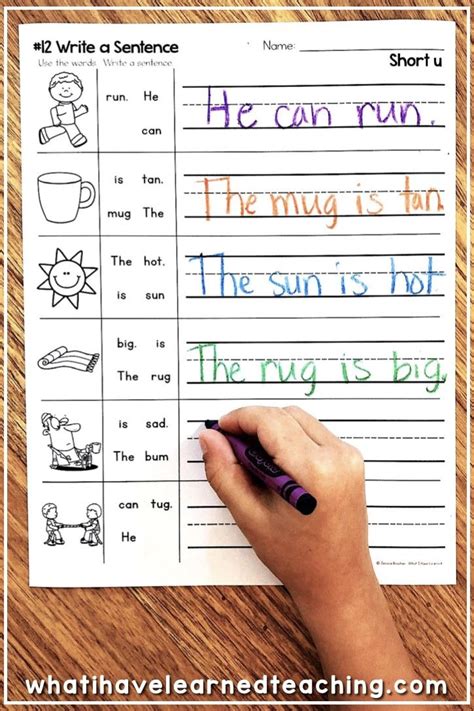 #12 Write a Sentence
Name:
Use the words. Write a sentence.
Short u
run. He
can
He can run.
is tan.
mug The
The mug is tan.
The hot.
is sun
The sun is hot
big. is
The rug
The rug is big.
is sad.
The bum
can tug.
He
whatihavelearnedteaching.com